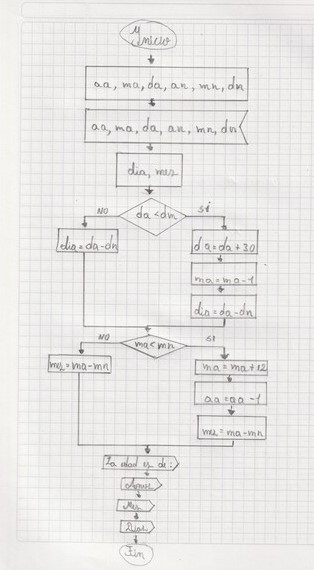 Inicio
aa, ma, da, an, mn, dn
aa, ma, da, an, mn, dn
dia, mes
da < dn
NO
si
dia = da - dn
da = da + 30
ma = ma - 1
dia = da - dn
ma < mn
NO
si
mes = ma - mn
ma = ma + 12
aa = aa - 1
mes = ma - mn
La edad es de:
Mes
Dias
Fin